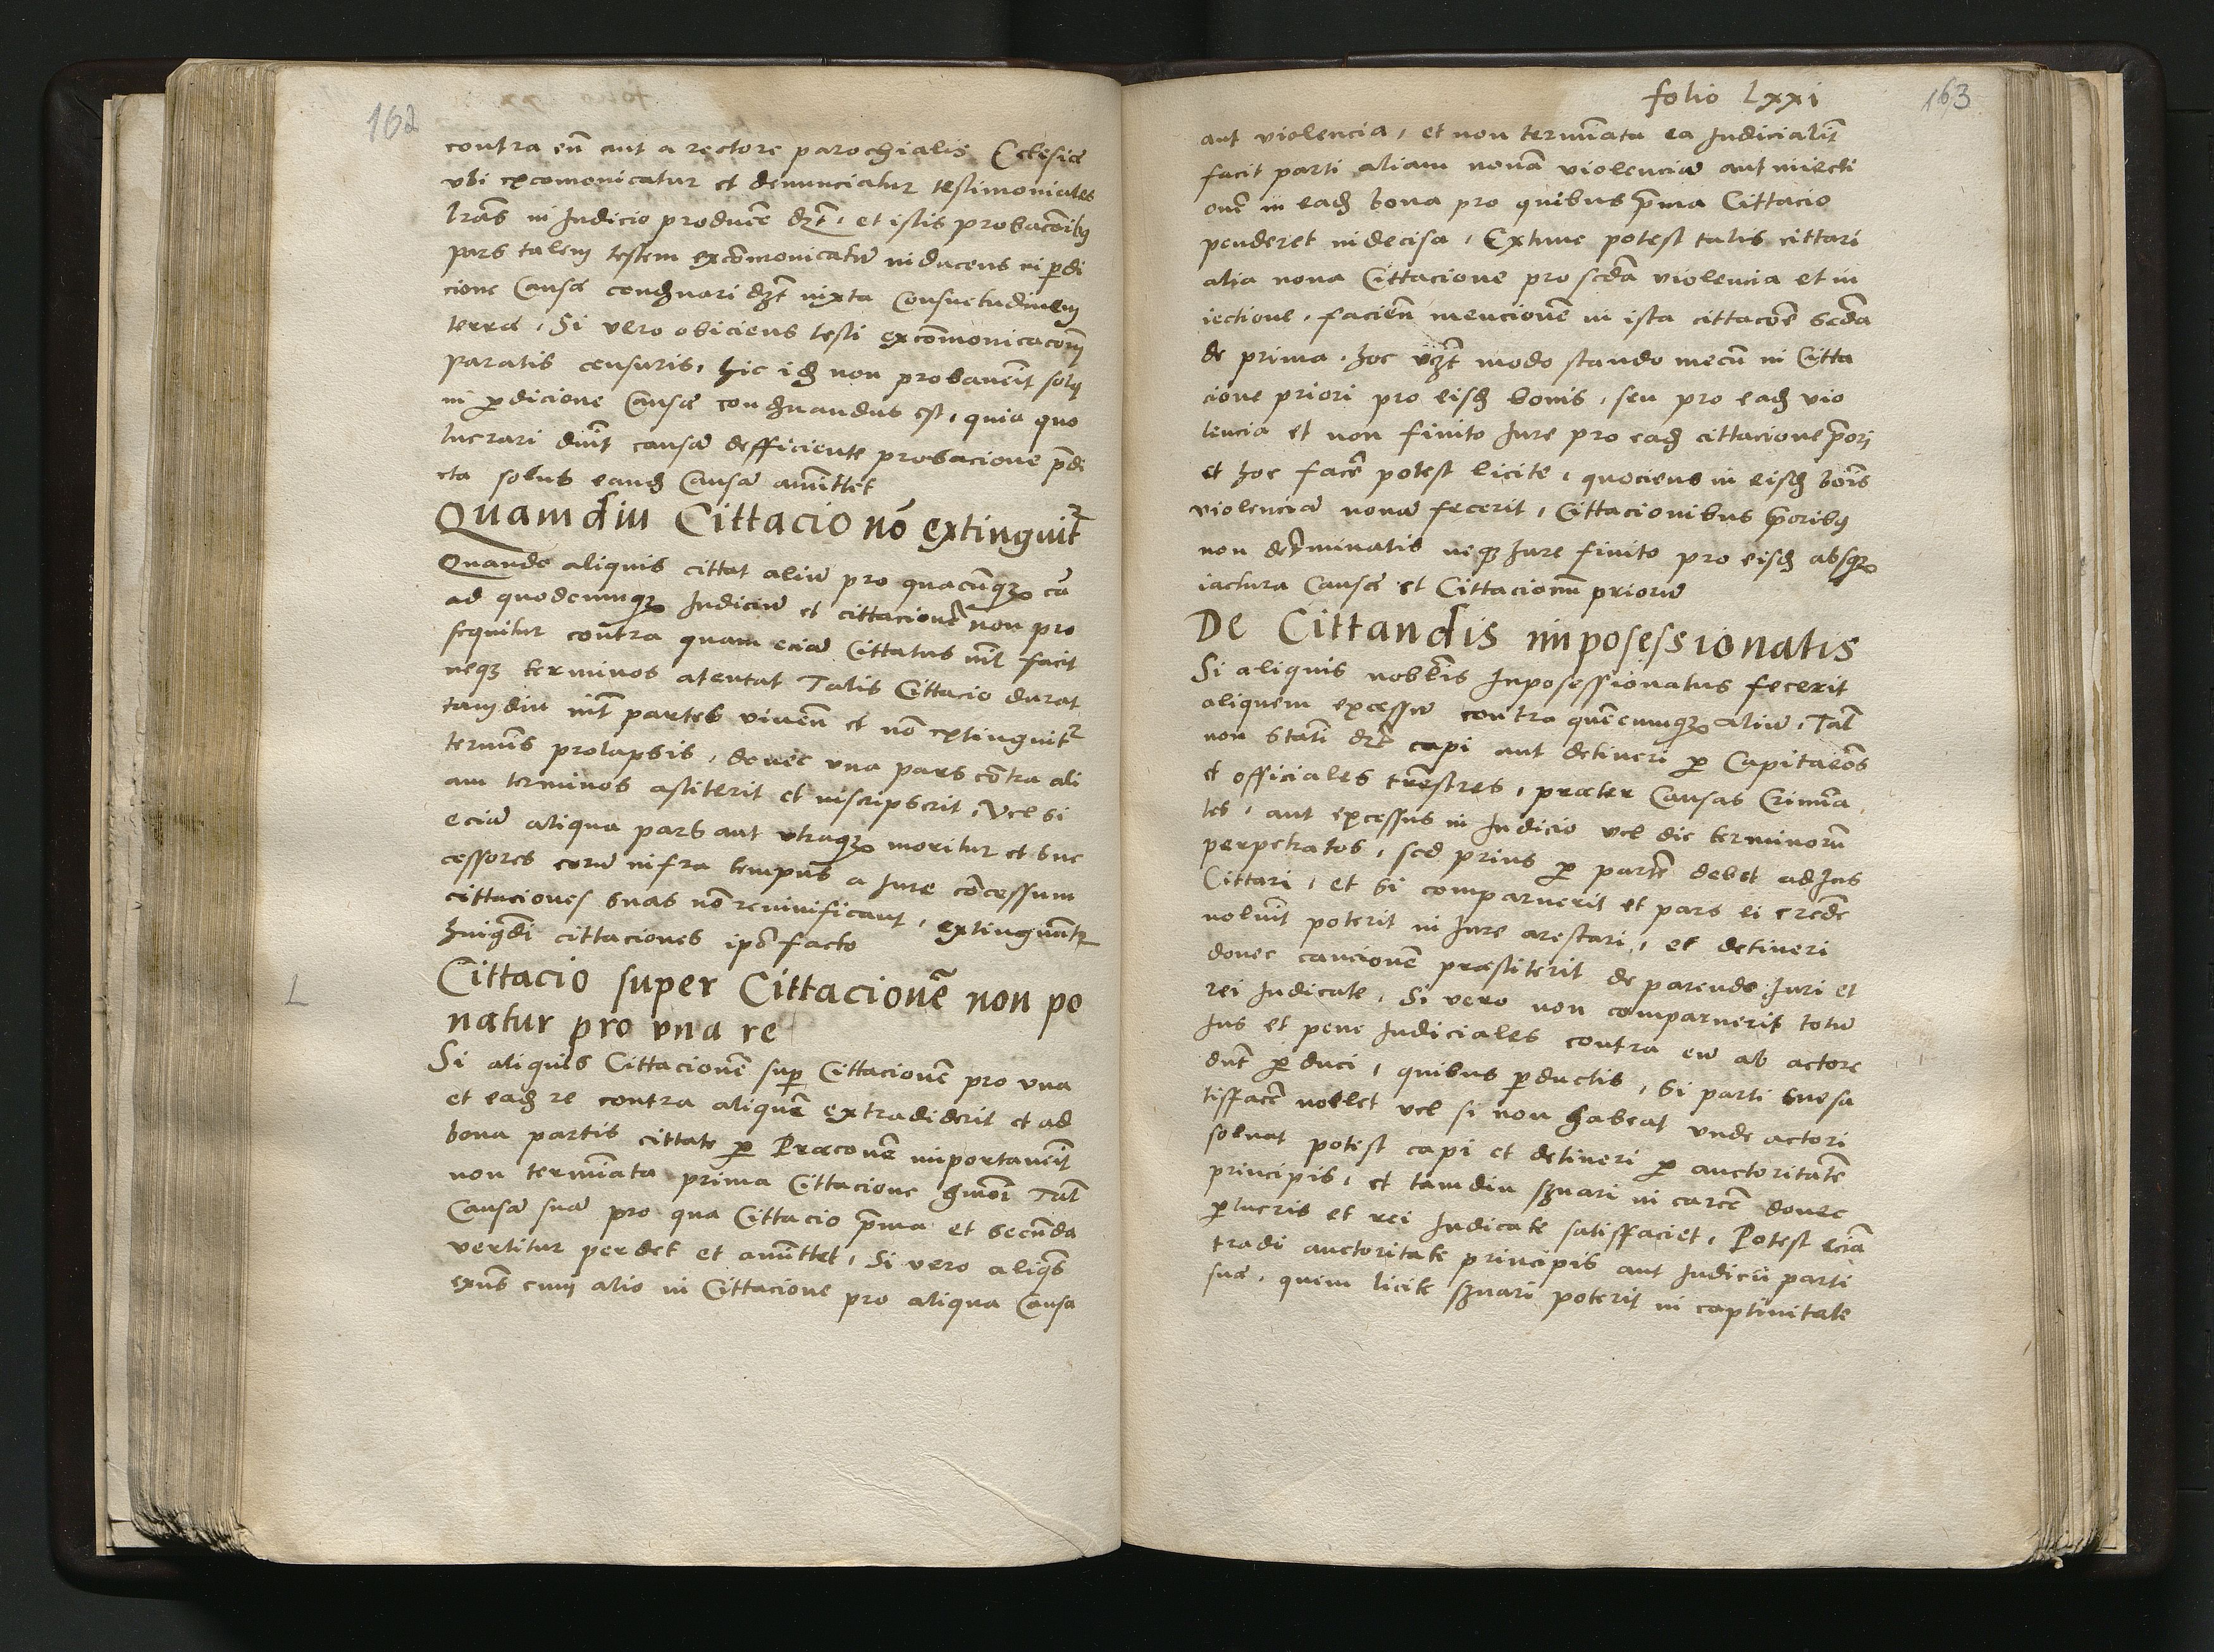 162
contra eū aut a rectore parochialis Eclesiæ
vbi excomonicatur et denunciatur testimoniales
lrās in Judicio produēe dzt, et istis probacōibus
pars talem testem excōmonicatū inducens in pdi
cione Causæ condnari dzt iuxta Consuetudinem
terræ, Si vero obiciens testi excōmonicacōm
paratis censuris, hic id non probauerit solus
in pdicione Causæ condnandus est, quia quo
lucrari diuit causā defficiente probacione pdi
cta solus eand Causā amittet
Quamdiu Cittacio nō extinguit
Quando aliquis cittat aliū pro quacūqz cā
ad quodcunqz Judiciū et cittacionē non pro
sequitur contra quam eciā Cittatus nil facit
neqz terminos atentat Talis Cittacio durat
tamdiu int partes viuen et nō extinguit
termis prolapsis, donec vna pars contra ali
am terminos astiterit et inscripserit, Vel si
eciā aliqua pars aut vtraqz moritur et suc
cessores eorū infra tempus a Jure cōcessum
cittaciones suas nō reuiuificant, extinguūt
huiqdi cittaciones ipō facto
L
Cittacio super Cittacionē non po
natur pro vna re
Si aliquis Cittacionē sup Cittacionē pro vna
et eadz re contra aliquē extradiderit et ad
bona partis cittate p Præconē importauerit
non termiata prima Cittacione hmōi Tal
Causā suā pro qua Cittacio pma et secūda
vertitur perdet et amittet, Si vero aliqs
exns cum alio in Cittacione pro aliqua Causa
folio Lxxi
163
aut violencia, et non termiata ea Judicialit
facit parti aliam nouā violenciā aut iniecti
onē in eadz bona pro quibus pma Cittacio
penderet indecisa, Extunc potest talis cittari
alia noua Cittacione pro scda violencia et in
iectione, facien mencionē in ista cittacōe scda
de prima, hoc vzt modo stando mecū in Citta
cione priori pro eisdz bonis, seu pro eadz vio
lencia et non finito Jure pro eadz cittacione priori
et hoc facē potest licite, quociens in eisdz bois
violenciā nouā fecerit, Cittacionibus prioribus
non determinatis neqz Jure finito pro eisdz absqz
iactura Causæ et Cittacionū priorū
De Cittandis imposessionatis
Si aliquis nobilis Inposessionatus fecerit
aliquem excessū contra quēcunqz aliū, Tal
non stati dzt capi aut detineri p Capitaeos
et officiales trestres, præter Causas Crimia
les, aut excessus in Judicio vel die terminorū
perpetratos, sed prius p partē debet ad Jus
Cittari, et si comparuerit et pars ei crede
noluit poterit in Jure arestari, et detineri
donec caucionē præstiterit de parendo Juri et
rei Judicate, Si vero non comparuerit totū
Jus et pene Judiciales contra eū ab actore
dnt p duci, quibus pductis, si parti suesa
tisfacē nollet vel si non habeat vnde actori
soluat potest capi et detineri p auctoritatē
principis, et tamdiu suari in carcē donec
plucris et rei Judicate satisfaciet, Potest eciā
tradi auctoritate principis aut Judicii parti
suæ, quem licite suari poterit in captiuitate